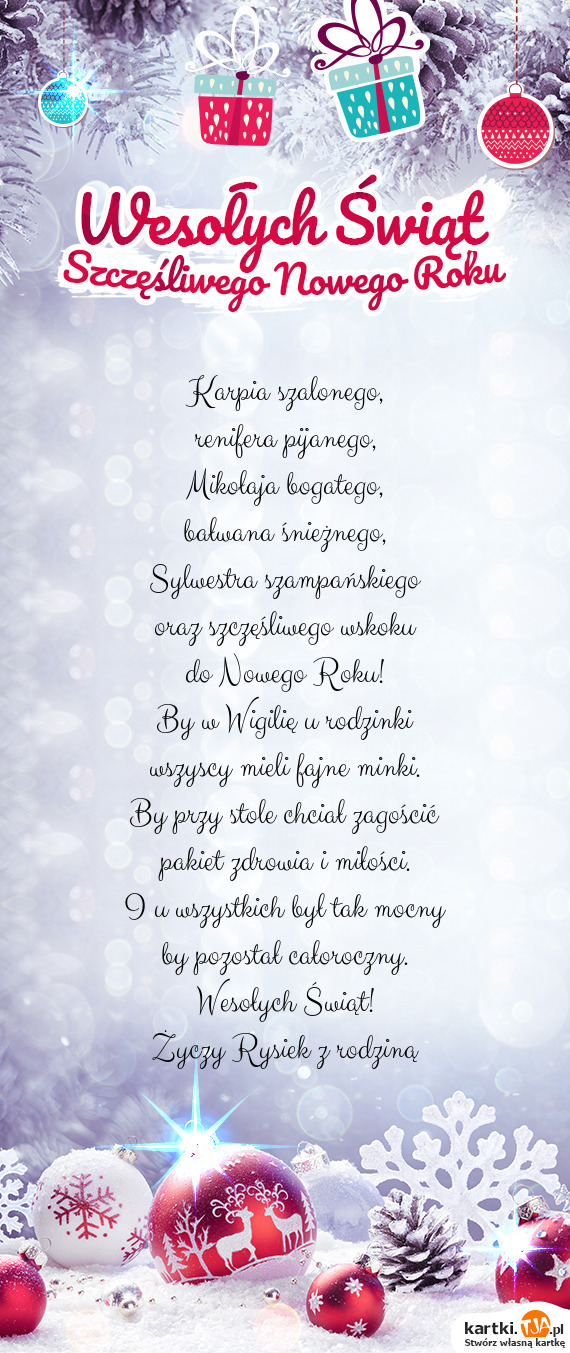 Wesołych Świąt
Szczęśliwego Nowego Roku
Karpia szalonego,
renifera pijanego,
Mikołaja bogatego,
bałwana śnieżnego,
Sylwestra szampańskiego
oraz szczęśliwego wskoku
do Nowego Roku!
By w Wigilię u rodzinki
wszyscy mieli fajne minki.
By przy stole chciał zagościć
pakiet zdrowia i miłości.
I u wszystkich był tak mocny
by pozostał całoroczny.
Wesołych Świąt!
Życzy Rysiek z rodziną
kartki.TJA.pl
Stwórz własną kartkę